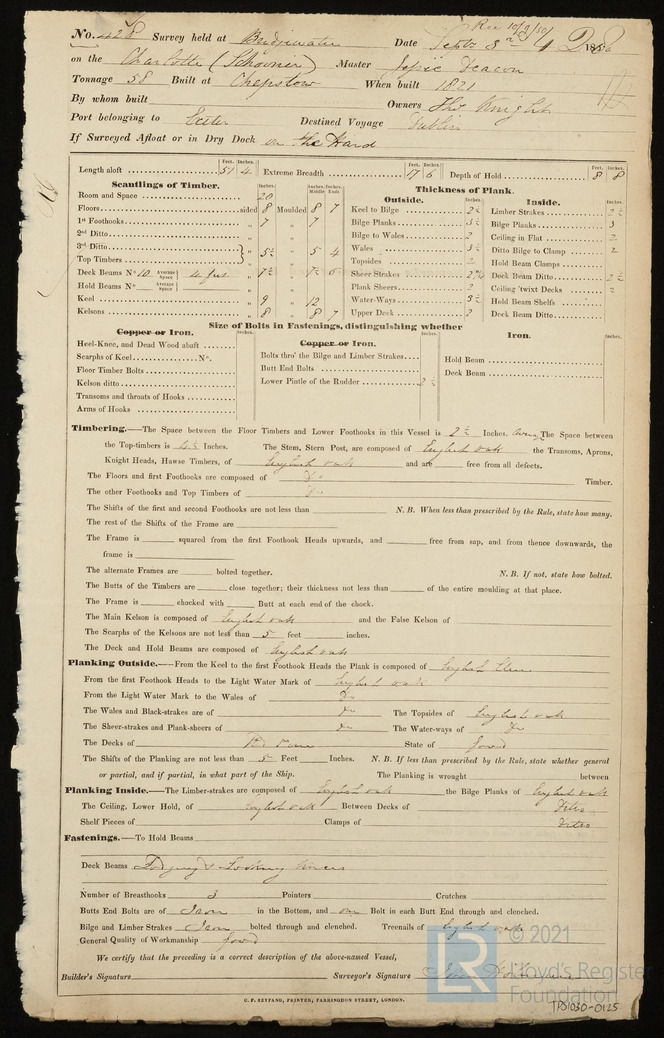 Rec 10/9/50
No. 428 Survey held at Bridgwater Date Septr 3rd 1850
on the Charlotte (Schooner) Master Deacon
Tonnage 58 Built at Chepstow When built 1821
By whom built Owners Thos Knight
Port belonging to Exeter Destined Voyage Dublin
If Surveyed Afloat or in Dry Dock on the Hard
Feet. Inches. Feet. Inches. Feet. Inches.
Length aloft 51 4 Extreme Breadth 17 6 Depth of Hold 8 8
Scantlings of Timber.
Inches. Inches. Middle. Inches. Ends
Room and Space 20
Floors sided 8 Moulded 8 7
1st Foothooks " 7 " 7
2nd Ditto " "
3rd Ditto
Top Timbers } " 5½ " 5 4
Deck Beams No. 10 Average Space 4 feet " 7½ " 7½ 6
Hold Beams No. Average Space " "
Keel " 9 " 12
Kelsons " 8 " 8 7
Thickness of Plank.
Outside.
Inches.
Keel to Bilge 2½
Bilge Planks 3½
Bilge to Wales 2
Wales 3½
Topsides 2
Sheer Strakes
Plank Sheers 2
Water-Ways 3½
Upper Deck 2
Inside.
Inches.
Limber Strakes 2½
Bilge Planks 3
Ceiling in Flat 2
Ditto Bilge to Clamp 2
Hold Beam Clamps
Deck Beam Ditto 2½
Ceiling 'twixt Decks 2
Hold Beam Shelfs
Deck Beam Ditto
Size of Bolts in Fastenings, distinguishing whether
Copper or Iron.
Inches.
Heel-Knee, and Dead Wood abaft
Scarphs of Keel No.
Floor Timber Bolts
Kelson ditto
Transoms and throats of Hooks
Arms of Hooks
Copper or Iron.
Inches.
Bolts thro' the Bilge and Limber Strakes
Butt End Bolts
Lower Pintle of the Rudder 2½
Iron.
Inches.
Hold Beam
Deck Beam
Timbering.—The Space between the Floor Timbers and Lower Foothooks in this Vessel is 2½ Inches. The Space between
the Top-timbers is 4½ Inches. The Stem, Stern Post, are composed of English oak the Transoms, Aprons,
Knight Heads, Hawse Timbers, of English oak and are free from all defects.
The Floors and first Foothooks are composed of Do Timber.
The other Foothooks and Top Timbers of Do
The Shifts of the first and second Foothooks are not less than N. B. When less than prescribed by the Rule, state how many.
The rest of the Shifts of the Frame are
The Frame is squared from the first Foothook Heads upwards, and free from sap, and from thence downwards, the
frame is
The alternate Frames are bolted together. N. B. If not, state how bolted.
The Butts of the Timbers are close together; their thickness not less than of the entire moulding at that place.
The Frame is chocked with Butt at each end of the chock.
The Main Kelson is composed of English oak and the False Kelson of
The Scarphs of the Kelsons are not less than 5 feet inches.
The Deck and Hold Beams are composed of English oak
Planking Outside.—From the Keel to the first Foothook Heads the Plank is composed of English Elm
From the first Foothook Heads to the Light Water Mark of English oak
From the Light Water Mark to the Wales of Do
The Wales and Black-strakes are of Do The Topsides of English oak
The Sheer-strakes and Plank-sheers of Do The Water-ways of Do
The Decks of State of Good
The Shifts of the Planking are not less than 5 Feet Inches. N. B. If less than prescribed by the Rule, state whether general
or partial, and if partial, in what part of the Ship. The Planking is wrought between
Planking Inside.—The Limber-strakes are composed of English oak the Bilge Planks of English oak
The Ceiling, Lower Hold, of English oak Between Decks of Ditto
Shelf Pieces of Clamps of Ditto
Fastenings.—To Hold Beams
Deck Beams Lodging & Hanging knees
Number of Breasthooks 3 Pointers Crutches
Butts End Bolts are of Iron in the Bottom, and one Bolt in each Butt End through and clenched.
Bilge and Limber Strakes Iron bolted through and clenched. Treenails of English oak
General Quality of Workmanship Good
We certify that the preceding is a correct description of the above-named Vessel,
Builder's Signature Surveyor's Signature
C. F. SEYFANG, PRINTER, FARRINGDON STREET, LONDON.
LR © 2021
Lloyd's Register
Foundation
TPS1030-0125